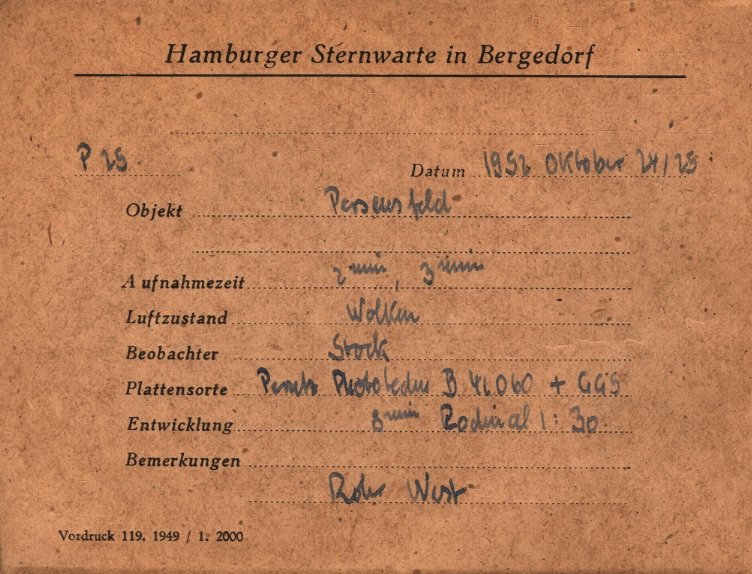 Hamburger Sternwarte in Bergedorf
P 25 Datum 1952 Oktober 24/25
Objekt Perseusfeld
Aufnahmezeit 2 min, 3 min
Luftzustand Wolken
Beobachter Stock
Plattensorte Perutz B 41060 + GG5
Entwicklung 8 min Rodinal 1:30
Bemerkungen
Rohr West
Vordruck 119. 1949 / 1. 2000